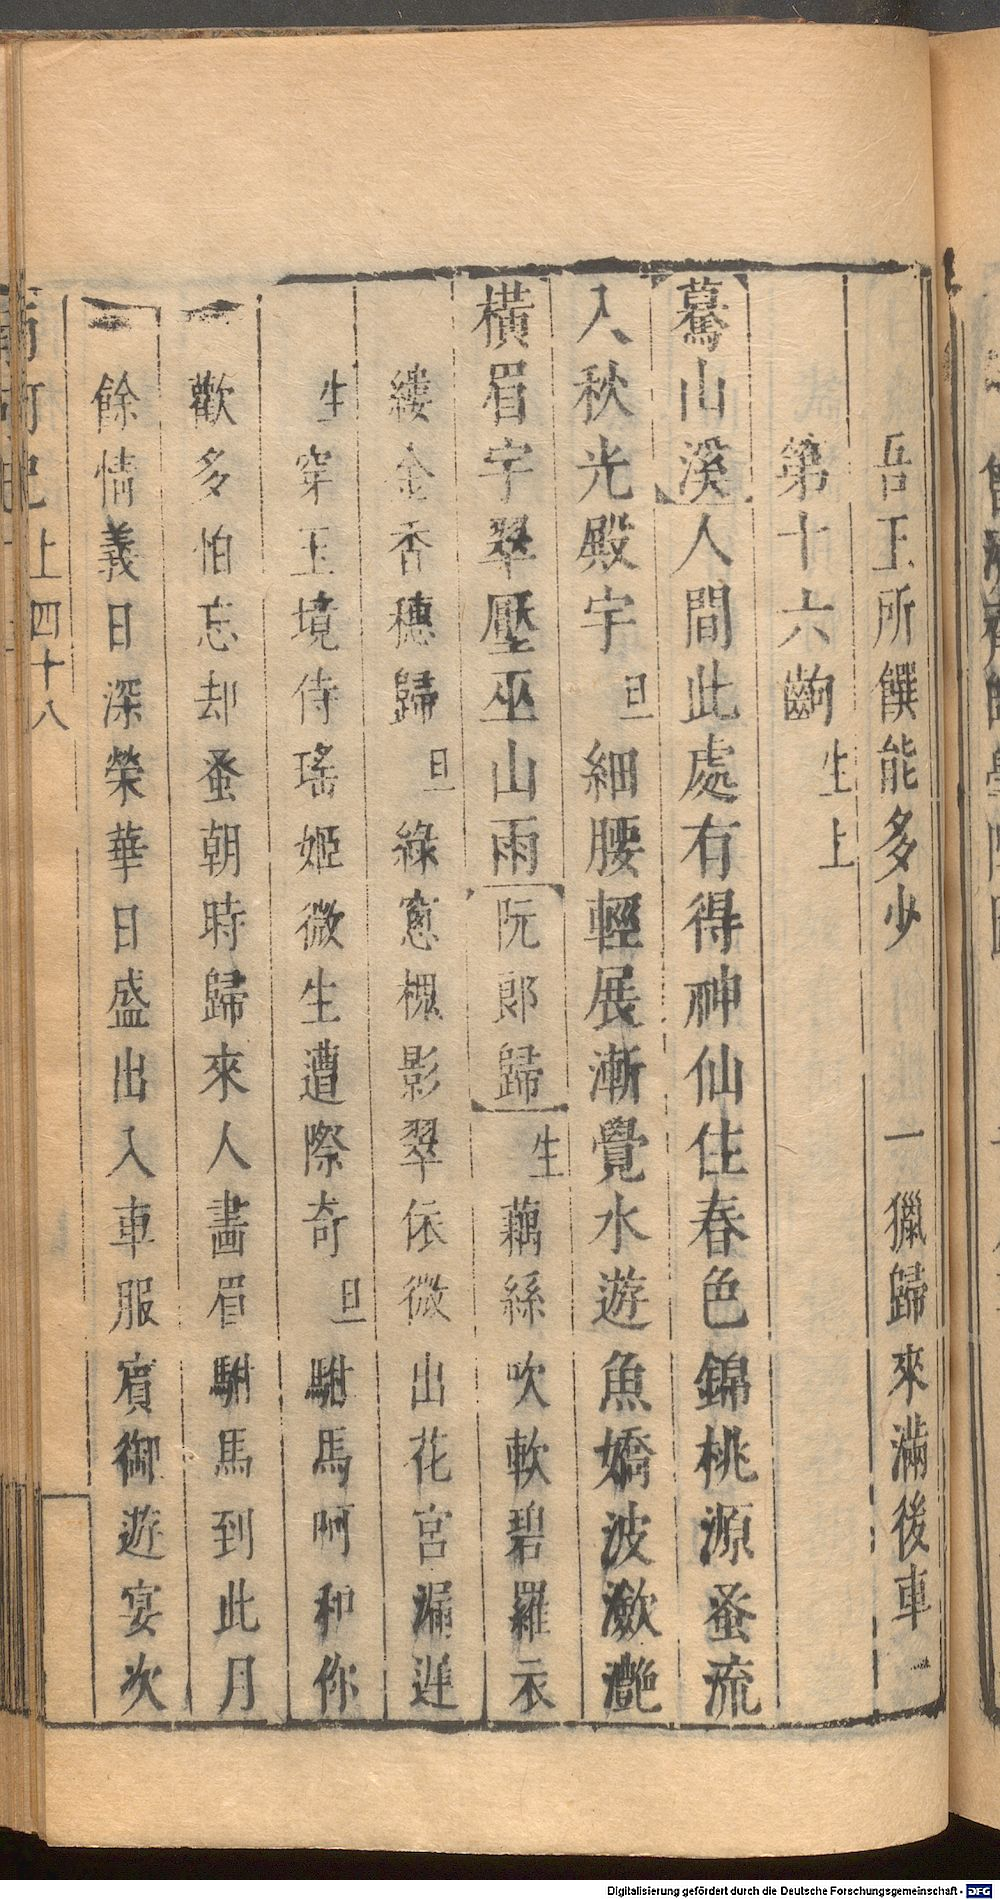 吾王所饌能多少　　一獵歸來滿後車
第十六齣　生上
驀山溪人間此處有得神仙住春色錦桃源蚤流
入秋光殿宇旦細腰輕展漸覺水遊魚嬌波瀲灧
橫眉宇翠壓巫山雨阮郎歸生藕絲吹軟碧羅衣
縷金香穗歸旦綠窻槐影翠依微出花宮漏遲
生穿玉境侍瑤姬微生遭際奇旦駙馬呵和你
歡多怕忘却蚤朝時歸來人畫眉駙馬到此月
餘情義日深榮華日盛出入車服賓御遊宴次
南柯記上四十八
Digitalisierung gefördert durch die Deutsche Forschungsgemeinschaft - DFG